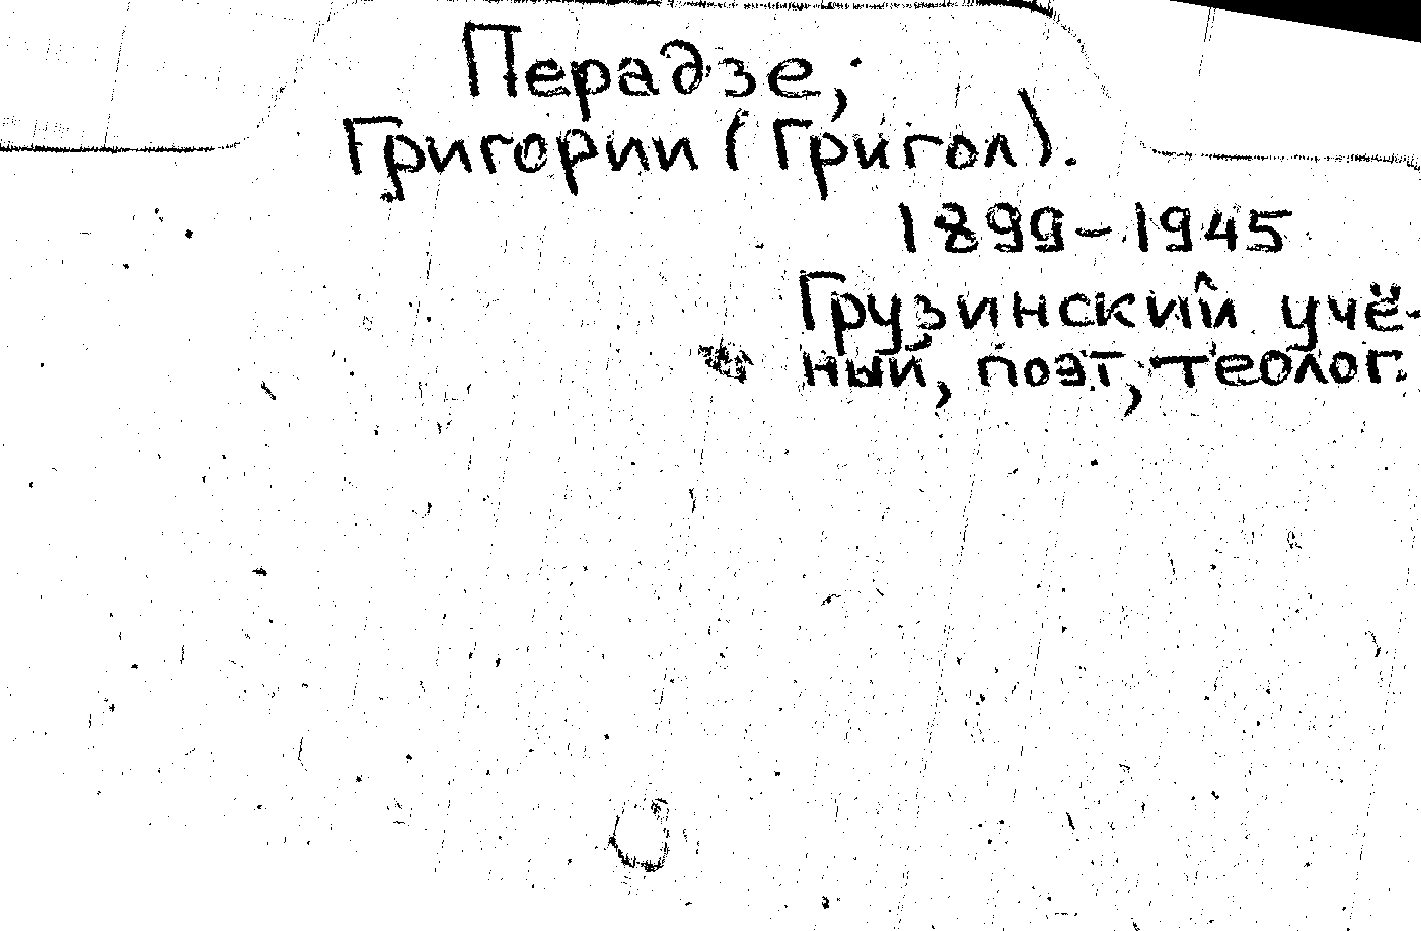 Перадзе,
Григории (Григол).
1899-1945
Грузинский учё-
ный, поэт, теолог.